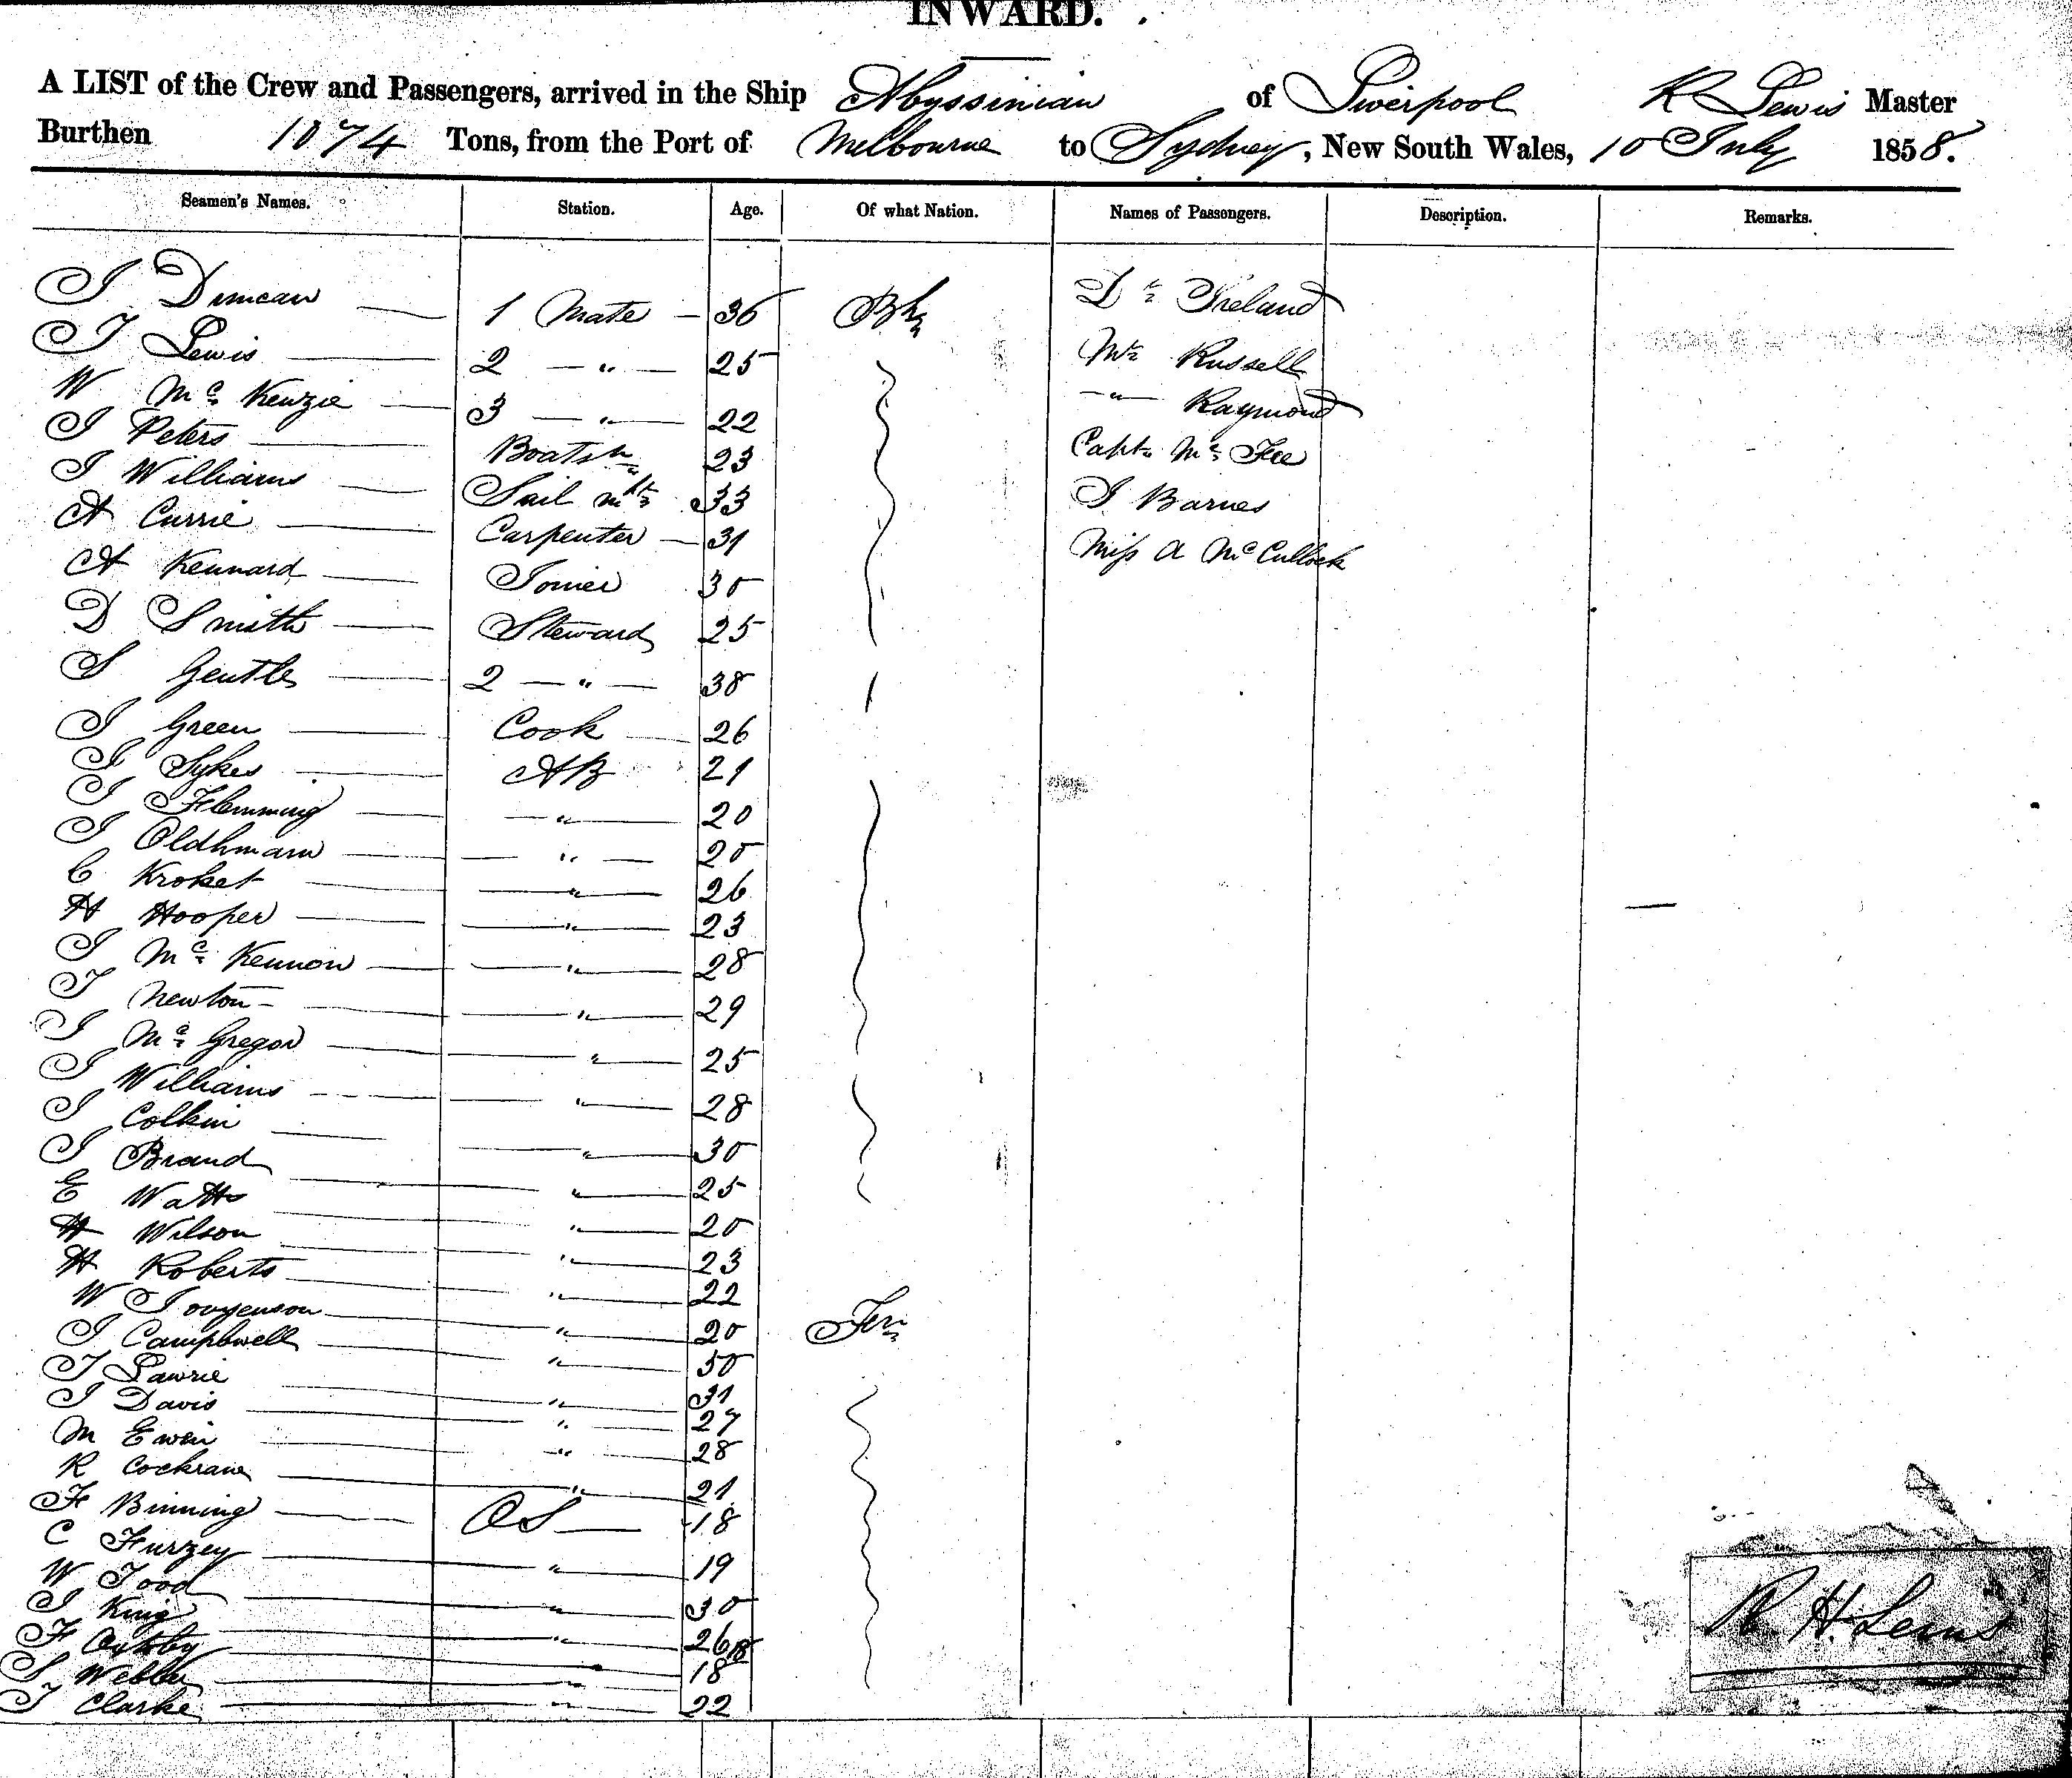 INWARD.
A LIST of the Crew and Passengers, arrived in the Ship Abyssinian of Liverpool R Lewis Master
Burthen 1074 Tons, from the Port of Melbourne to Sydney, New South Wales, 10 July 1858.
Seamen's Names. Station. Age. Of what Nation. Names of Passengers. Description. Remarks.
J Duncan — 1 Mate — 36 Dr Ireland
T Lewis — 2 — " — 25 Mr Russell
W Mc Kenzie — 3 — " — 22 — " — Raymond
J Peters — Boatsn 23 Capt. Mc Fee
J Williams — Sail mkr 33 J Barnes
A Currie — Carpenter — 31 Miss A McCullock
A Kennard — Joiner 30
D Smith — Steward 25
S Gentles — 2 — " — 38
J Green — Cook — 26
J Sykes — AB 21
J Flemming — " — 20
J Oldhmam — " — 20
C Kroket — " — 26
H Hooper — " — 23
J Mc Kennon — " — 28
T Newton — " — 29
J Mc Gregor — " — 25
J Williams — " — 28
J Colkin — " — 30
J Brand — " — 25
E Watts — " — 20
H Wilson — " — 23
H Roberts — " — 22
W Jorgenson — " — 20
J Campbwell — " — 50
T Lawrie — " — 31
J Davis — " — 27
M Ewin — " — 28
R Cockrane — " — 21
F Binning — OS — 18
C Furzey — " — 19
W Tood — " — 30
J King — " — 26
F — " — 18
S Webber — " —
T Clarke — " — 22
R. H. Lewis